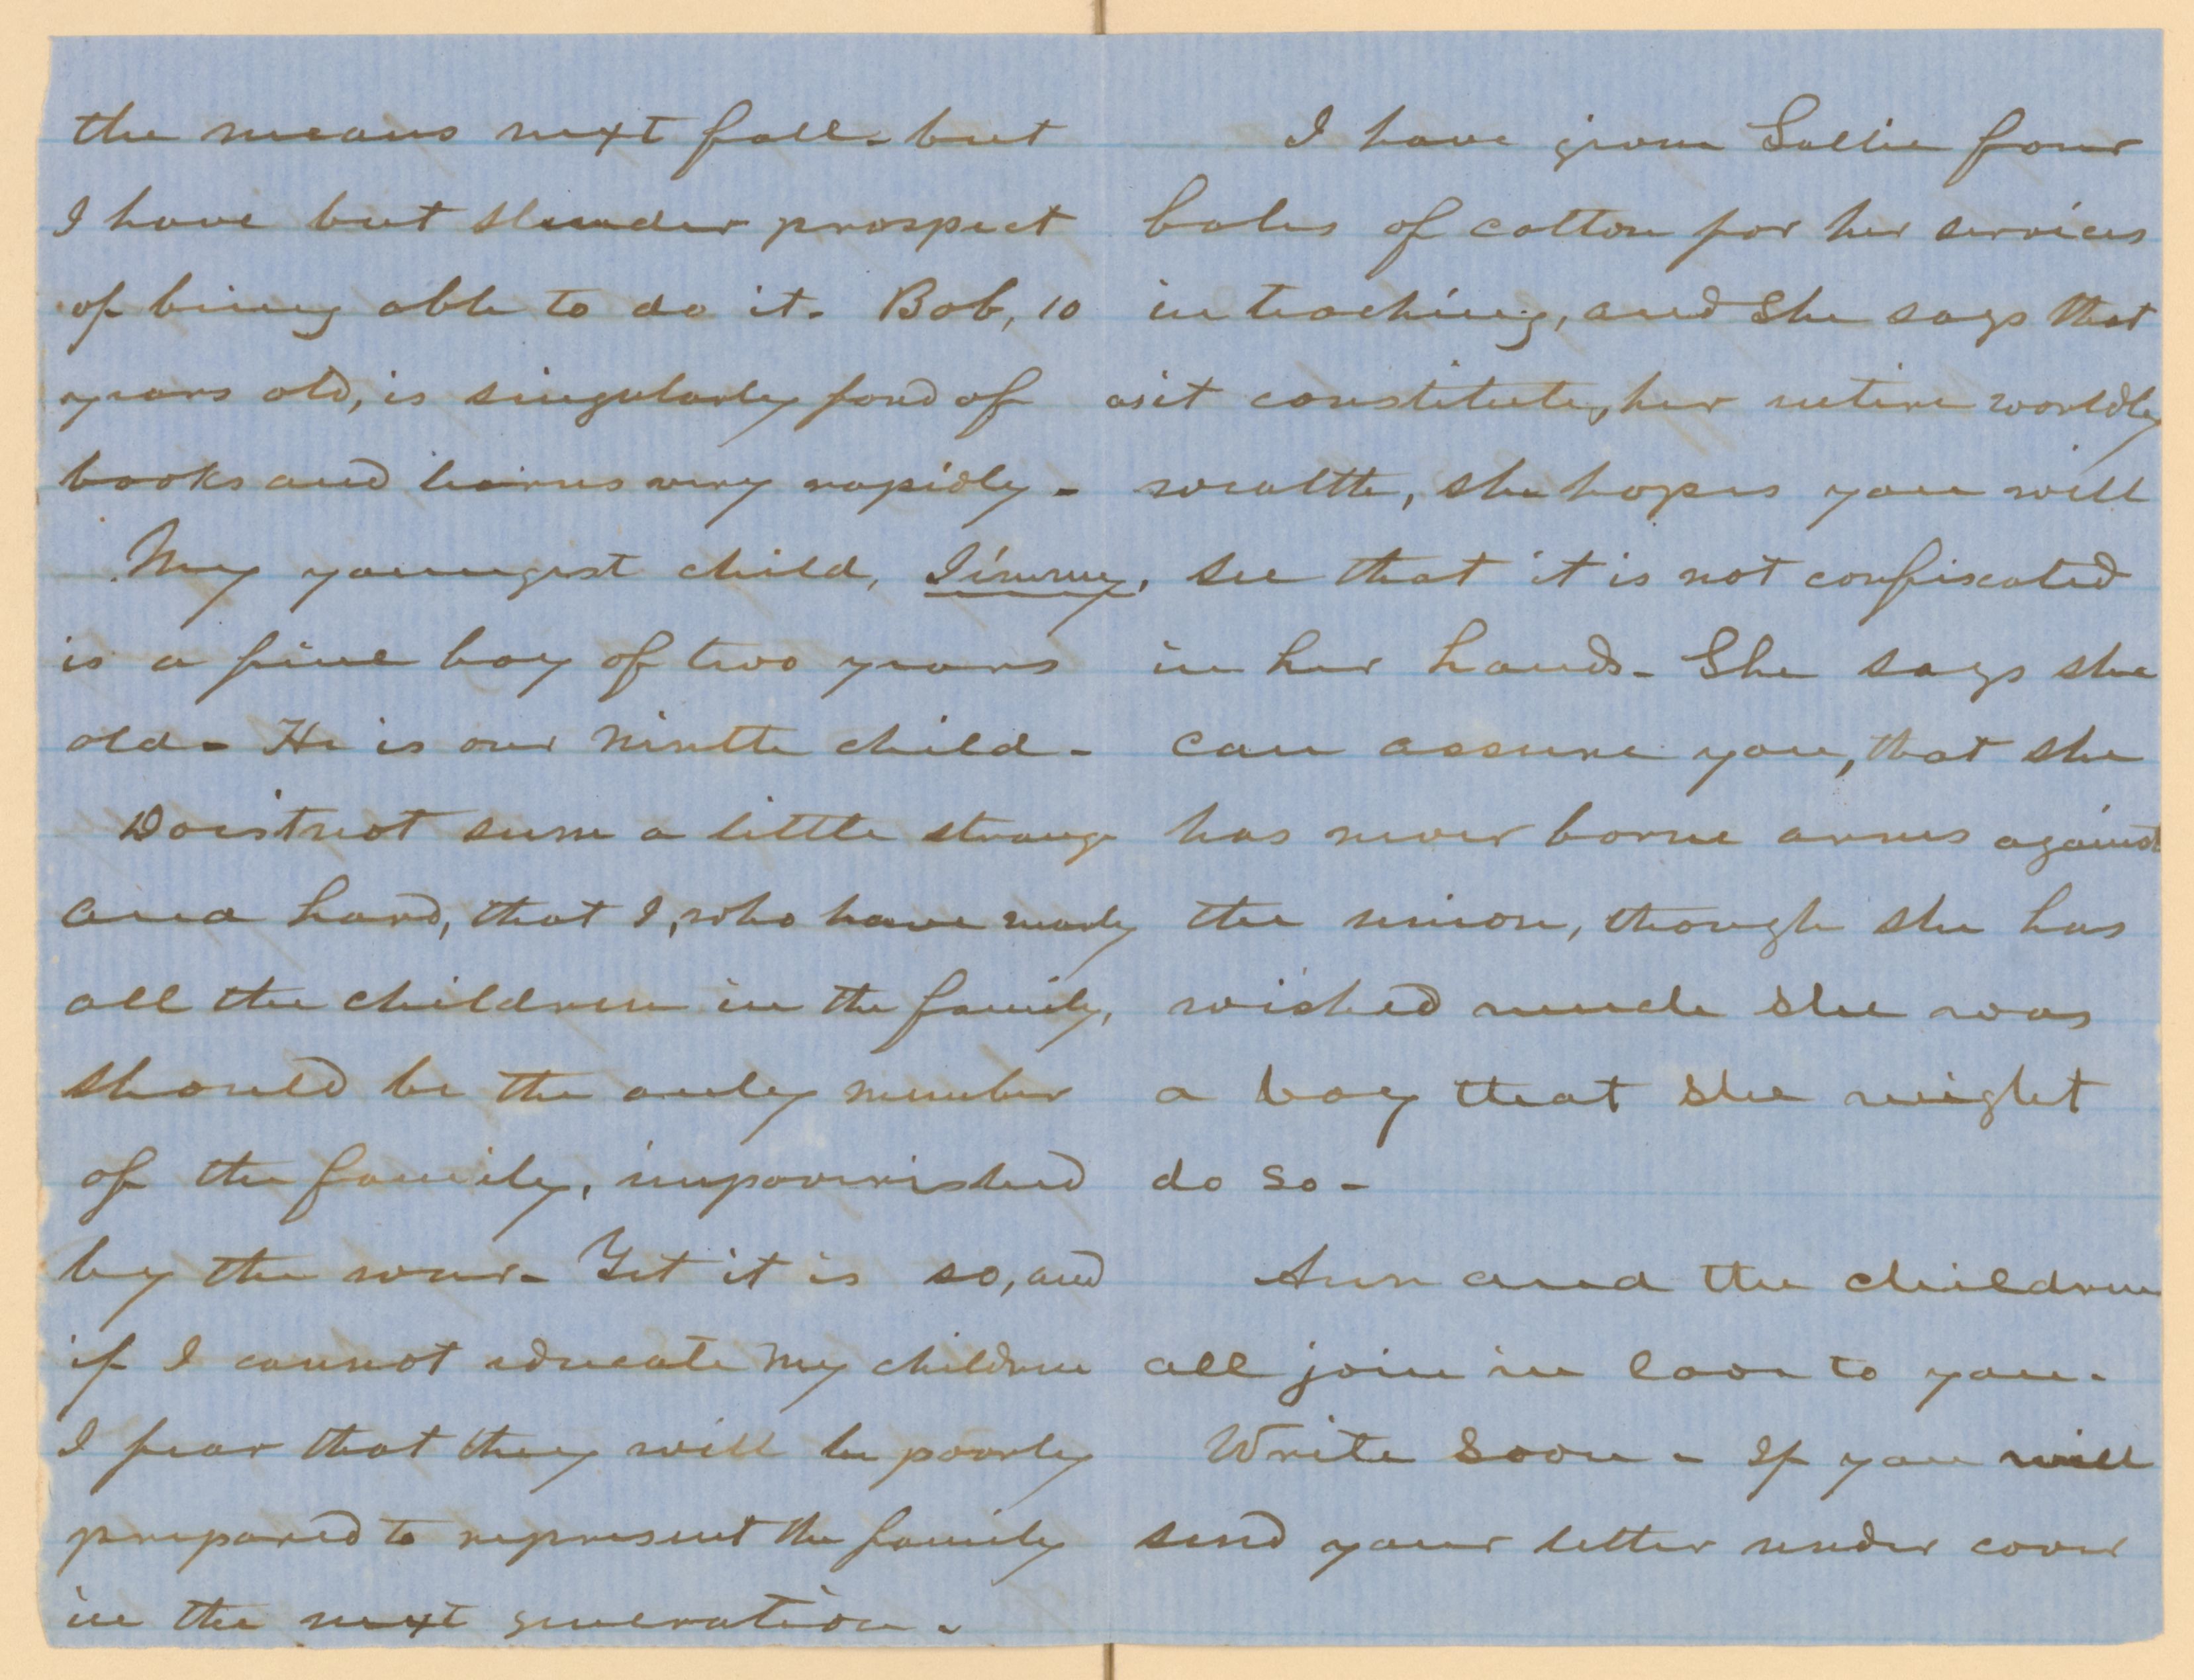 the means next fall - but
I have but slender prospect
of being able to do it. Bob, 10
years old, is singularly fond of
books and learns very rapidly -
My youngest child, Jimmy,
is a fine boy of two years
old - He is our ninth child -
Does it not seem a little strange
and hard, that I, who have nearly
all the children in the family,
should be the only member
of the family, impoverished
by the war - Yet it is so, and
if I cannot educate my children
I fear that they will be poorly
prepared to represent the family
in the next generation -
I have given Sallie four
bales of cotton for her services
in teaching, and she says that
as it constitutes, her entire worldly
wealth, she hopes you will
see that it is not confiscated
in her hands - She says she
can assure you, that she
has never borne arms against
the union, though she has
wished much she was
a boy that she might
do so -
Ann and the children
all join in love to you -
Write soon - If you will
send your letter under cover